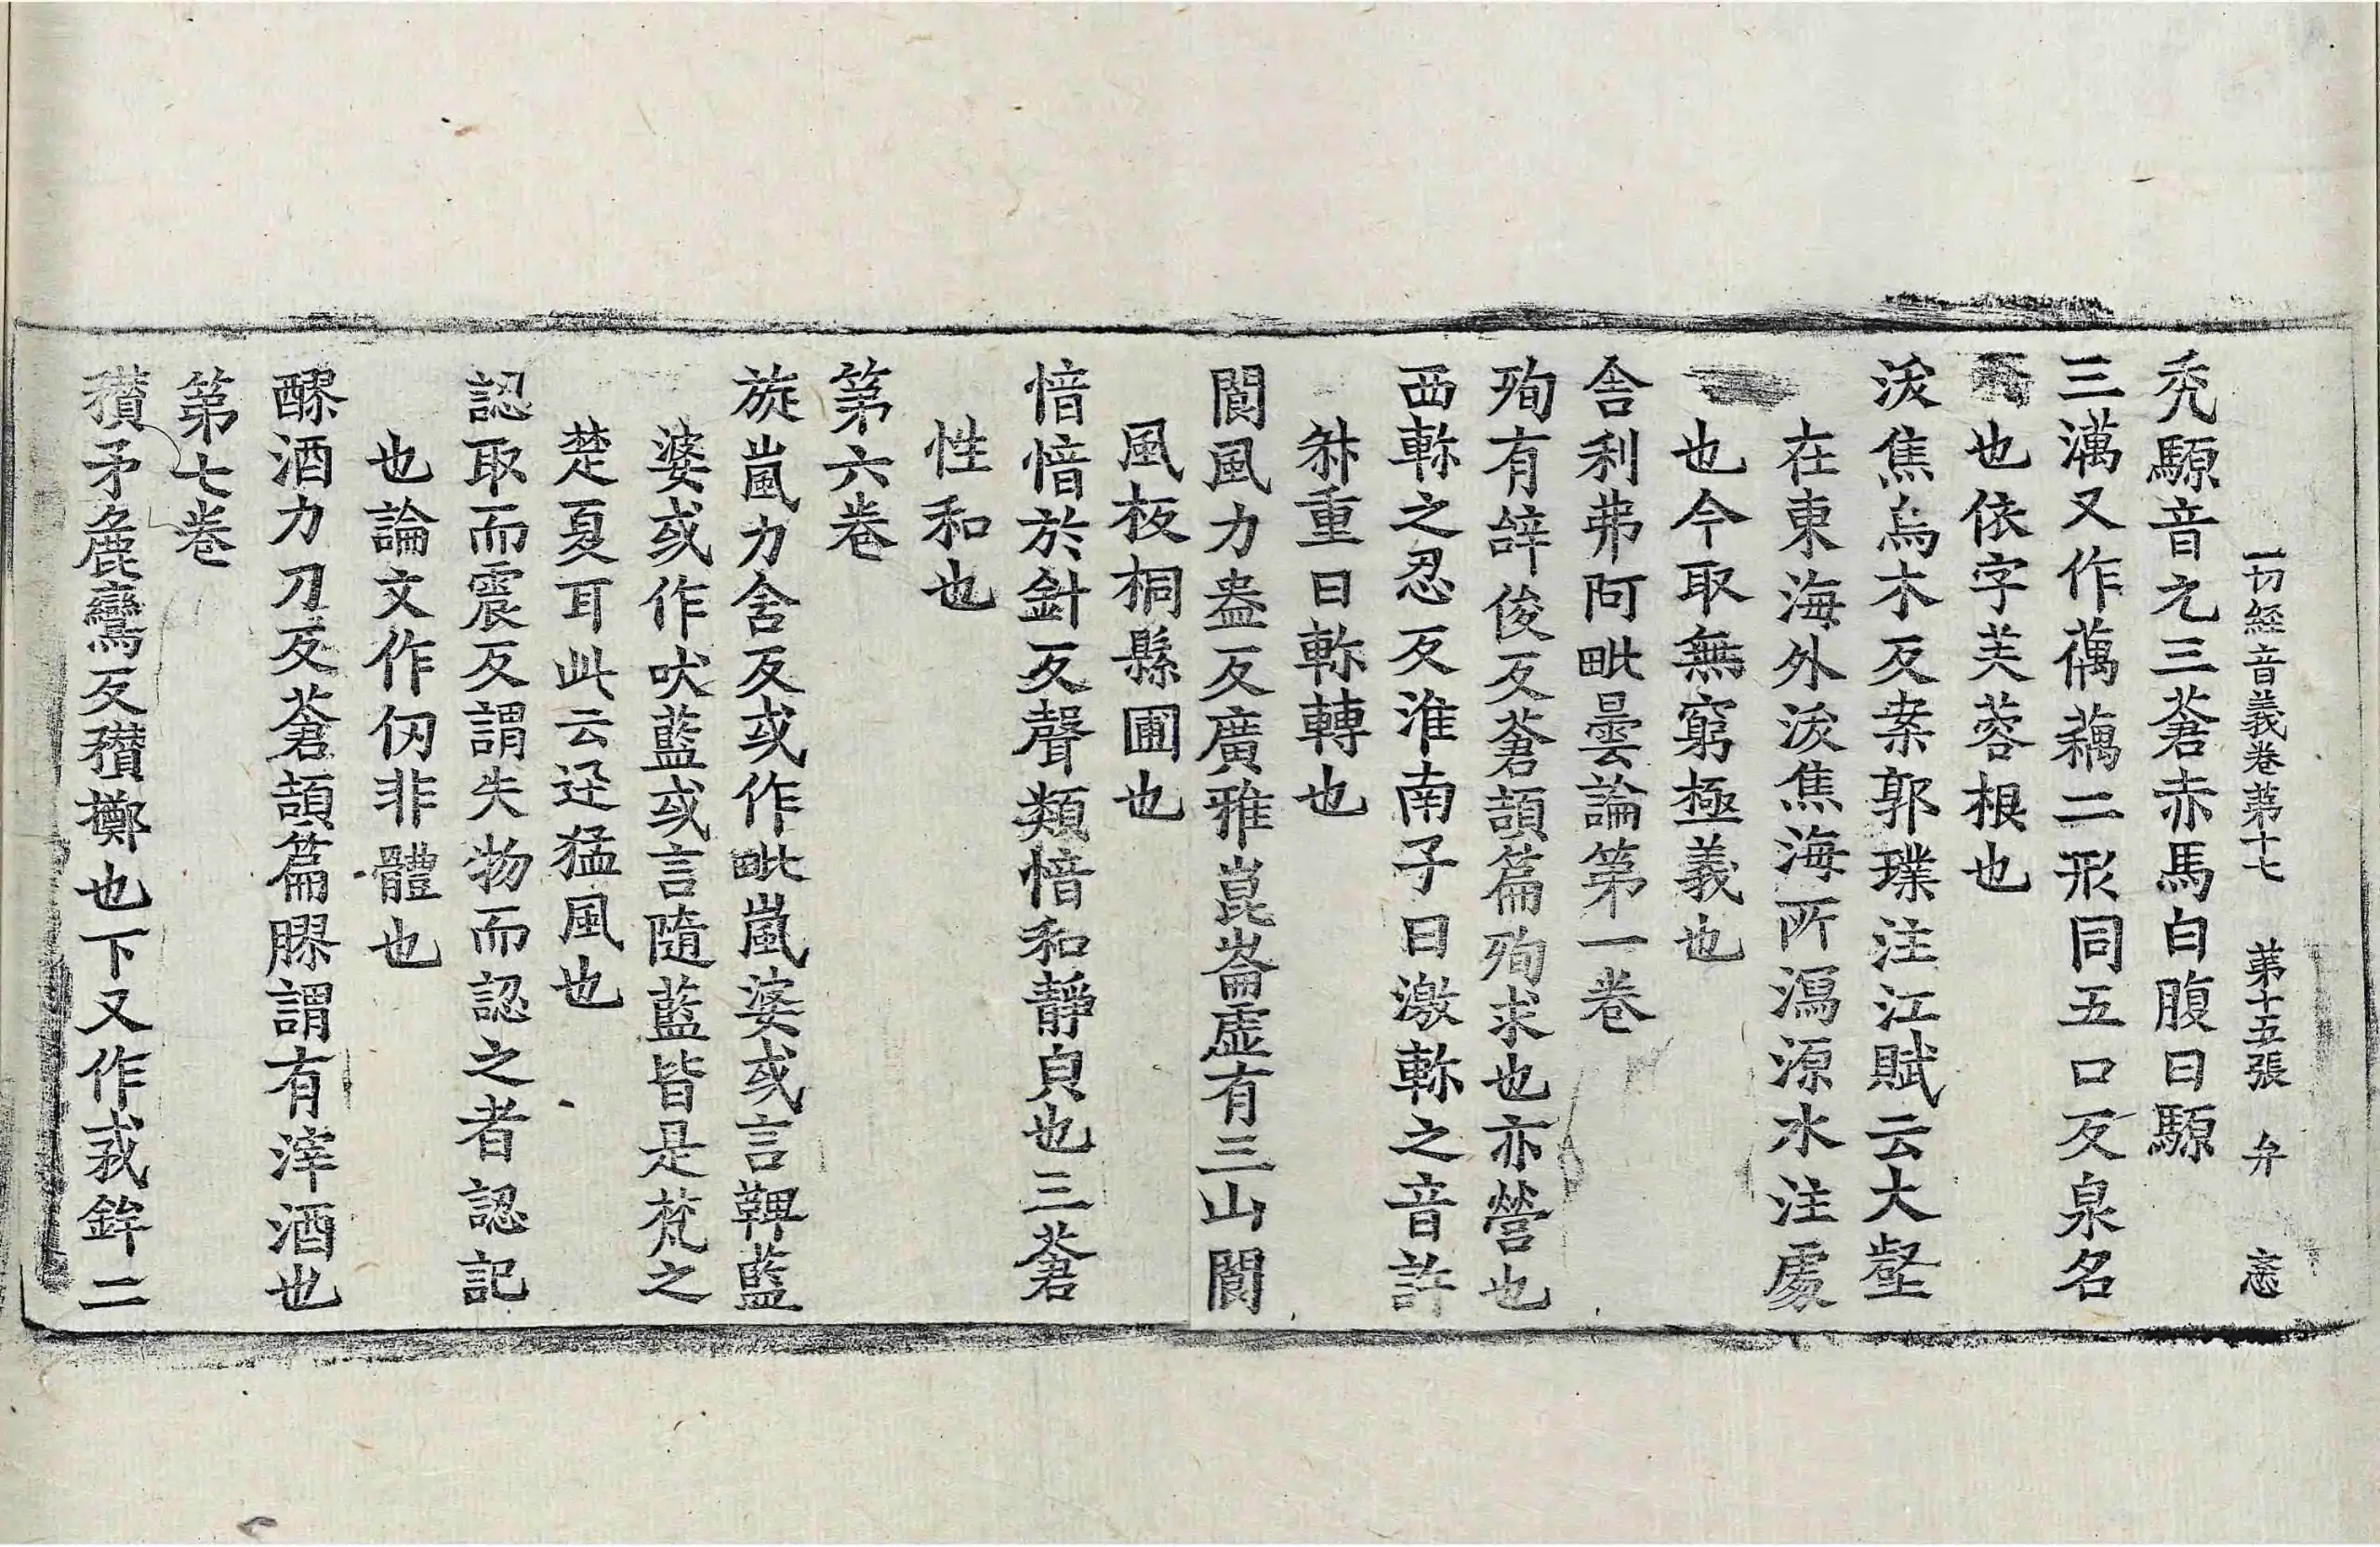 一切經音義卷第十七 第十五張 弁 惎
禿騵音元三蒼赤馬白腹曰騵
三澫又作藕蕅二形同五口反泉名
也依字芙蓉根也
沷焦烏木反案郭璞注江賦云大壑
在東海外沷焦海所瀉源水注處
也今取無窮極義也
舍利弗阿毗曇論第一卷
殉有辝俊反蒼頡篇殉求也亦營也
西軫之忍反淮南子曰激軫之音許
叔重曰軫轉也
閬風力盎反廣雅崑崙虛有三山閬
風板桐縣圃也
愔愔於針反聲類愔和靜皃也三蒼
性和也
第六卷
旋嵐力含反或作毗嵐婆或言鞞藍
婆或作吠藍或言隨藍皆是梵之
楚夏耳此云迅猛風也
認取而震反謂失物而認之者認記
也論文作仞非體也
醪酒力刀反蒼頡篇醪謂有滓酒也
第七卷
穳矛麁鸞反穳擲也下又作㦵鉾二